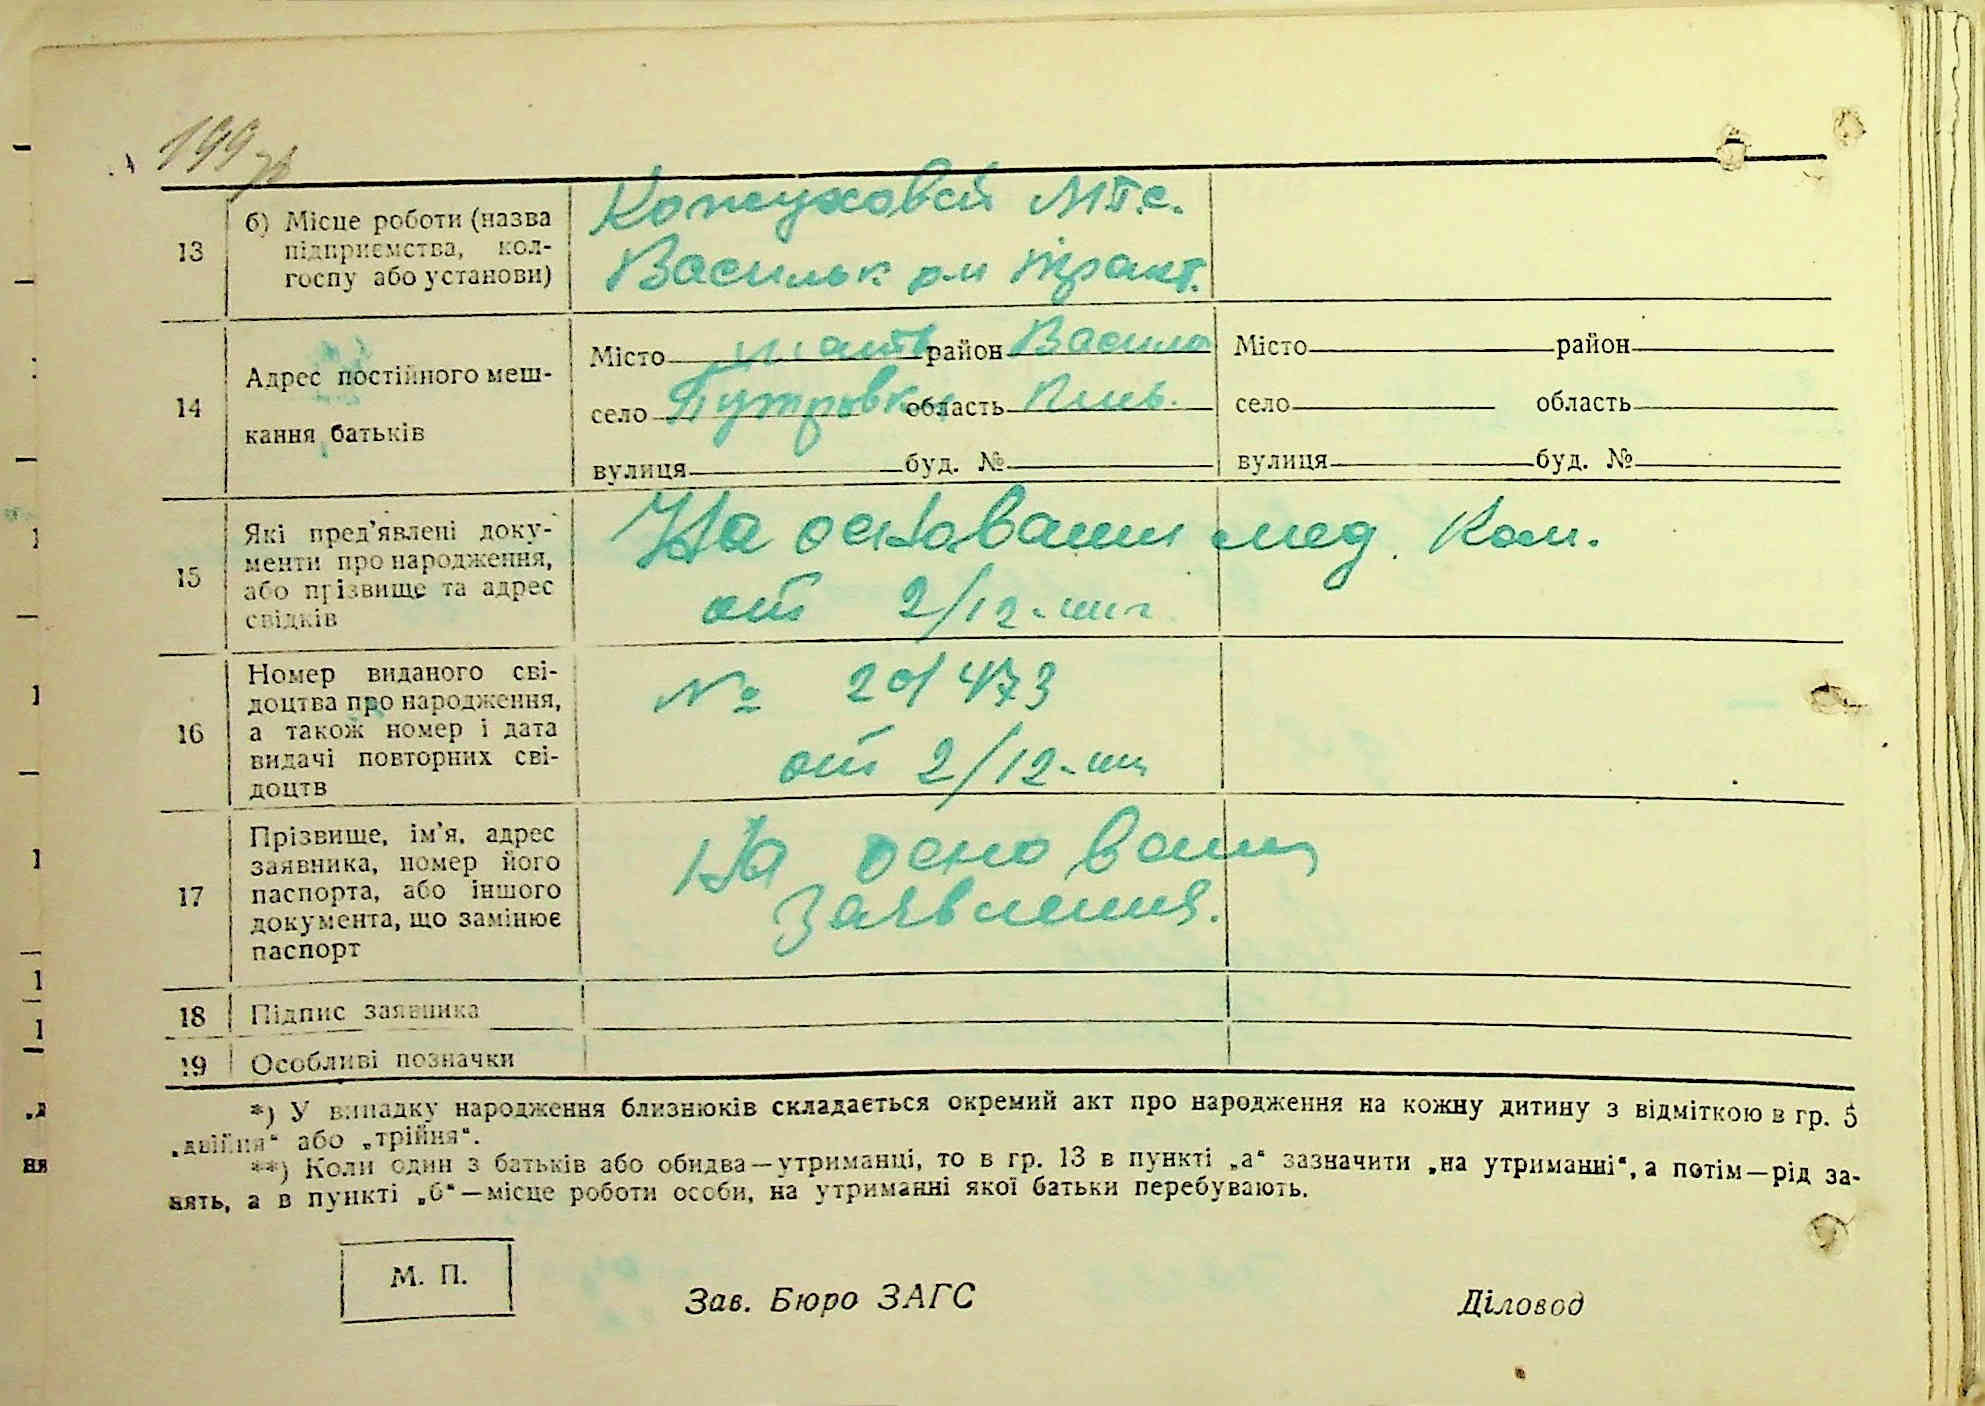 199 зв
13
б) Місце роботи (назва
підприємства, кол-
госпу або установи)
Кожуховсй МТ.С.
Васильк р-н тракт.
14
Адрес постійного меш-
кання батьків
Місто мать район Васильк
село Путровка область Київ.
вулиця буд. №
Місто район
село область
вулиця буд. №
15
Які пред'явлені доку-
менти про народження,
або прізвище та адрес
свідків
На основании мед. Ком.
от 2/12-
16
Номер виданого сві-
доцтва про народження,
а також номер і дата
видачі повторних сві-
доцтв
№ 201473
от 2/12-
17
Прізвище, ім'я, адрес
заявника, номер його
паспорта, або іншого
документа, що замінює
паспорт
На основании
Заявления.
18 Підпис заявника
19 Особливі позначки
*) У випадку народження близнюків складається окремий акт про народження на кожну дитину з відміткою в гр. 5
„двійня“ або „трійня“.
**) Коли один з батьків або обидва—утриманці, то в гр. 13 в пункті „а“ зазначити „на утриманні“, а потім—рід за-
нять, а в пункті „б“—місце роботи особи, на утриманні якої батьки перебувають.
М. П.
Зав. Бюро ЗАГС
Діловод